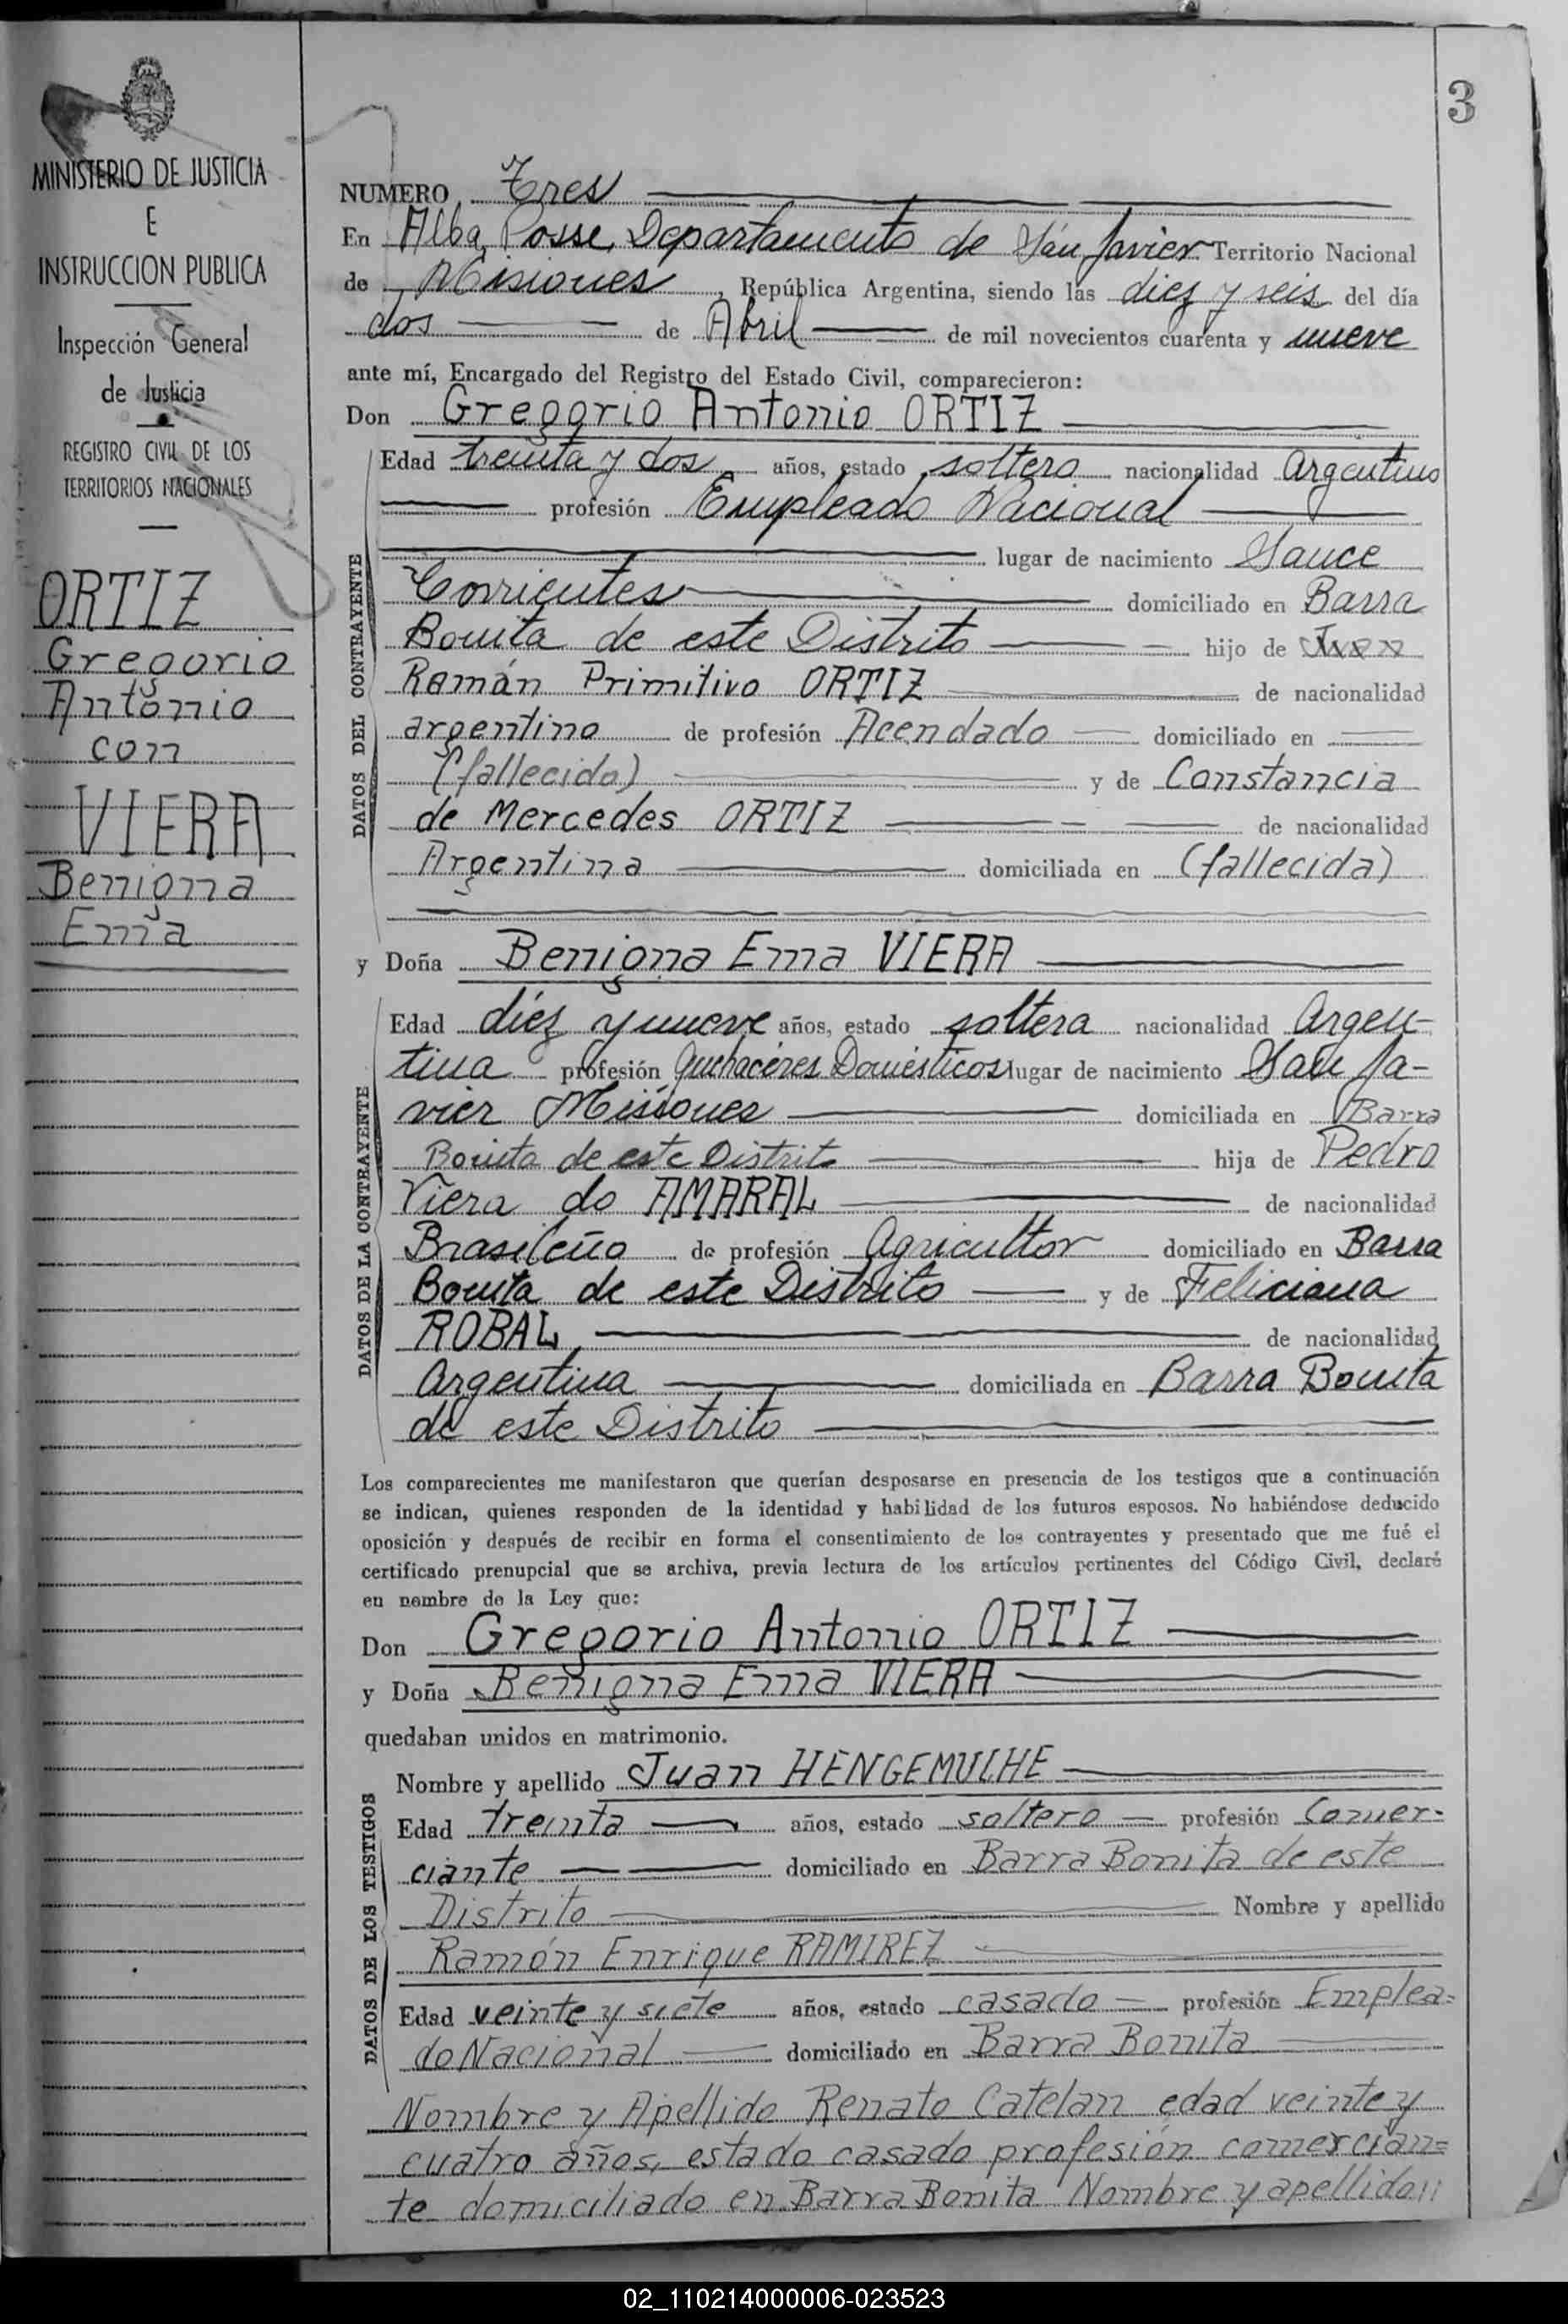 3
MINISTERIO DE JUSTICIA
E
INSTRUCCION PUBLICA
Inspección General
de Justicia
REGISTRO CIVIL DE LOS
TERRITORIOS NACIONALES
ORTIZ
Gregorio
Antonio
con
VIERA
Benigna
Ema
NUMERO Tres
En Alba Posse, Departamento de San Javier Territorio Nacional
de Misiones, República Argentina, siendo las diez y seis del día
dos de Abril de mil novecientos cuarenta y nueve
ante mí, Encargado del Registro del Estado Civil, comparecieron:
Don Gregorio Antonio ORTIZ
DATOS DEL CONTRAYENTE
Edad treinta y dos años, estado soltero nacionalidad Argentino
profesión Empleado Nacional
lugar de nacimiento Sauce
Corrientes domiciliado en Barra
Bonita de este Distrito hijo de
Román Primitivo ORTIZ de nacionalidad
argentino de profesión Acendado domiciliado en
(fallecido) y de Constancia
de Mercedes ORTIZ de nacionalidad
Argentina domiciliada en (fallecida)
y Doña Benigna Ema VIERA
DATOS DE LA CONTRAYENTE
Edad diez y nueve años, estado soltera nacionalidad Argen-
tina profesión Quehaceres Domésticos lugar de nacimiento San Ja-
vier Misiones domiciliada en Barra
Bonita de este Distrito hija de Pedro
Viera do AMARAL de nacionalidad
Brasileño de profesión Agricultor domiciliado en Barra
Bonita de este Distrito y de Feliciana
ROBAL de nacionalidad
Argentina domiciliada en Barra Bonita
de este Distrito
Los comparecientes me manifestaron que querían desposarse en presencia de los testigos que a continuación
se indican, quienes responden de la identidad y habilidad de los futuros esposos. No habiéndose deducido
oposición y después de recibir en forma el consentimiento de los contrayentes y presentado que me fué el
certificado prenupcial que se archiva, previa lectura de los artículos pertinentes del Código Civil, declaré
en nombre de la Ley que:
Don Gregorio Antonio ORTIZ
y Doña Benigna Ema VIERA
quedaban unidos en matrimonio.
DATOS DE LOS TESTIGOS
Nombre y apellido Juan HENGEMULHE
Edad treinta años, estado soltero profesión Comer=
ciante domiciliado en Barra Bonita de este
Distrito Nombre y apellido
Ramón Enrique RAMIREZ
Edad veinte y siete años, estado casado profesión Emplea=
do Nacional domiciliado en Barra Bonita
Nombre y Apellido Renato Catelan edad veinte y
cuatro años, estado casado profesión comercian=
te domiciliado en Barra Bonita Nombre y apellido//
02_110214000006-023523